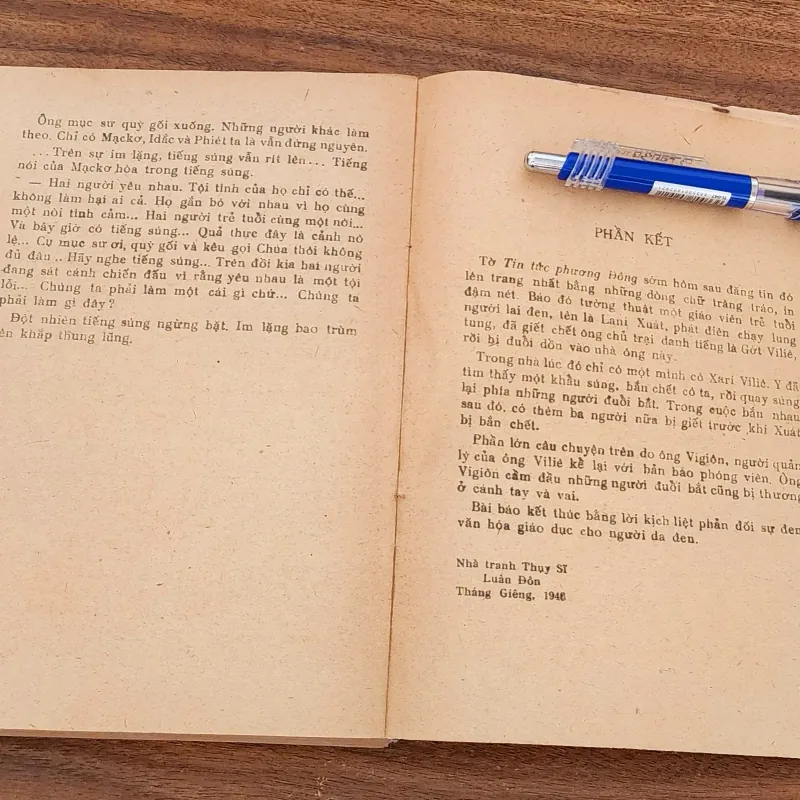 Ông mục sư quỳ gối xuống. Những người khác làm
theo. Chỉ có Mạckơ, Idắc và Phiét ta là vẫn đứng nguyên.
...Trên sự im lặng, tiếng súng vẫn rít lên... Tiếng
nói của Mạckơ hòa trong tiếng súng.
— Hai người yêu nhau. Tội tình của họ chỉ có thế...
không làm hại ai cả. Họ gắn bó với nhau vì họ cùng
một nòi tình cảm... Hai người trẻ tuổi cùng một nòi...
Và bây giờ có tiếng súng... Quả thực đây là cảnh nô
lệ... Cụ mục sư ơi, quỳ gối và kêu gọi Chúa thôi không
đủ đâu.. Hãy nghe tiếng súng... Trên đồi kia hai người
đang sát cánh chiến đấu vì rằng yêu nhau là một tội
lỗi... Chúng ta phải làm một cái gì chứ... Chúng ta
phải làm gì đây?
Đột nhiên tiếng súng ngừng bặt. Im lặng bao trùm
lên khắp thung lũng.
PHẦN KẾT
Tờ Tin tức phương Đông sớm hôm sau đăng tin đó
lên trang nhất bằng những dòng chữ trâng tráo, in
đậm nét. Báo đó tường thuật một giáo viên trẻ tuổi
người lai đen, tên là Lani Xuát, phát điên chạy lung
tung, đã giết chết ông chủ trại danh tiếng là Gớt Viliê,
rồi bị đuổi dồn vào nhà ông này.
Trong nhà lúc đó chỉ có một mình cô Xari Viliê. Y đã
tìm thấy một khẩu súng, bắn chết cô ta, rồi quay súng
lại phía những người đuổi bắt. Trong cuộc bắn nhau
sau đó, có thêm ba người nữa bị giết trước khi Xuát
bị bắn chết.
Phần lớn câu chuyện trên do ông Vigiôn, người quản
lý của ông Viliê kể lại với bản báo phóng viên. Ông
Vigiôn cầm đầu những người đuổi bắt cũng bị thương
ở cánh tay và vai.
Bài báo kết thúc bằng lời kịch liệt phản đối sự đem
văn hóa giáo dục cho người da đen.
Nhà tranh Thụy Sĩ
Luân Đôn
Tháng Giêng, 1946